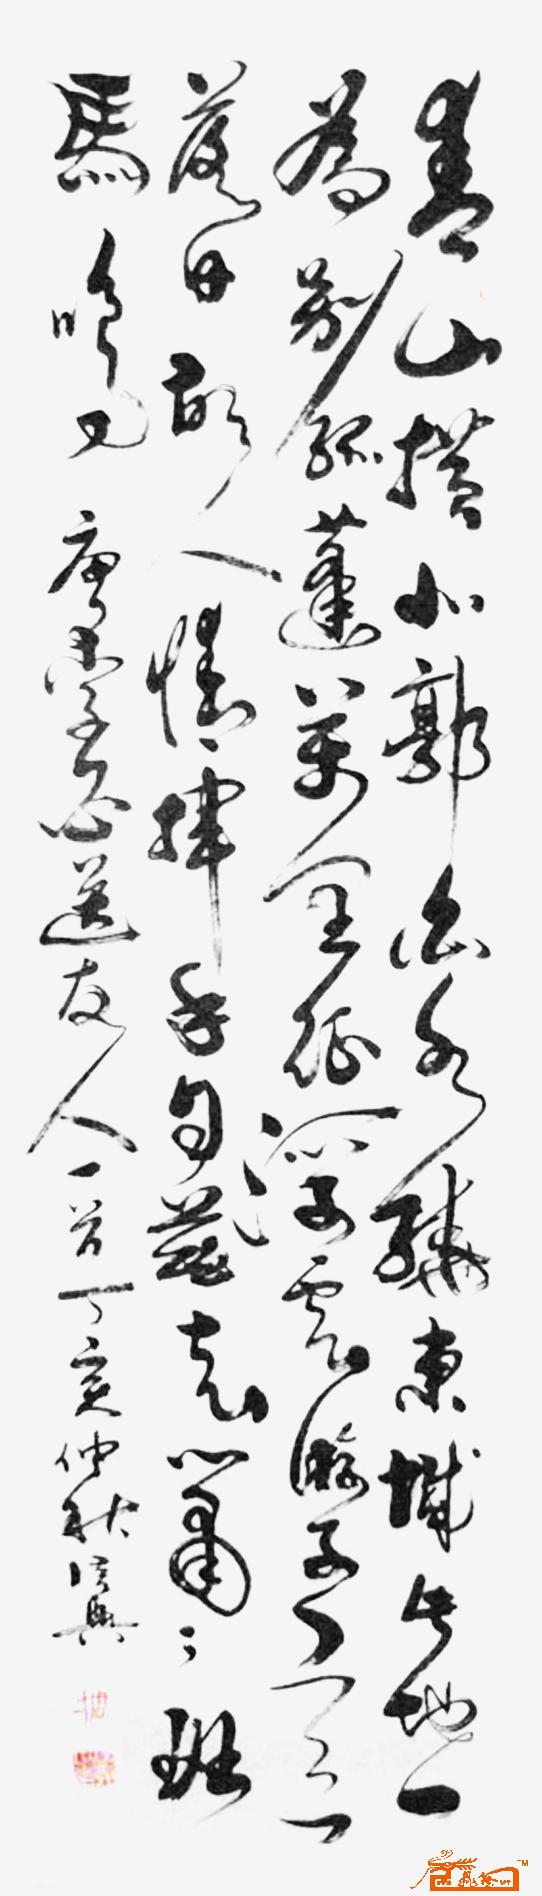 青山橫北郭白水繞東城此地一
為別孤蓬萬里征浮雲游子意
落日故人情揮手自茲去蕭々班
馬鳴 唐李白送友人一首丁亥仲秋